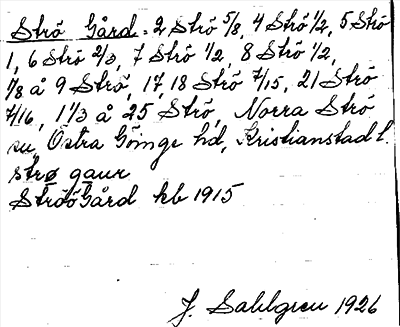 Strö Gård = 2 Strö 5/8, 4 Strö 1/2, 5 Strö
1, 6 Strö 2/3, 7 Strö 1/2, 8 Strö 1/2,
1/8 å 9 Strö, 17, 18 Strö 7/15, 21 Strö
7/16, 1 1/3 å 25 Strö, Norra Strö
su, Östra Göinge hd, Kristianstad l.
strø gaur
Strö Gård kb 1915
J. Sahlgren 1926